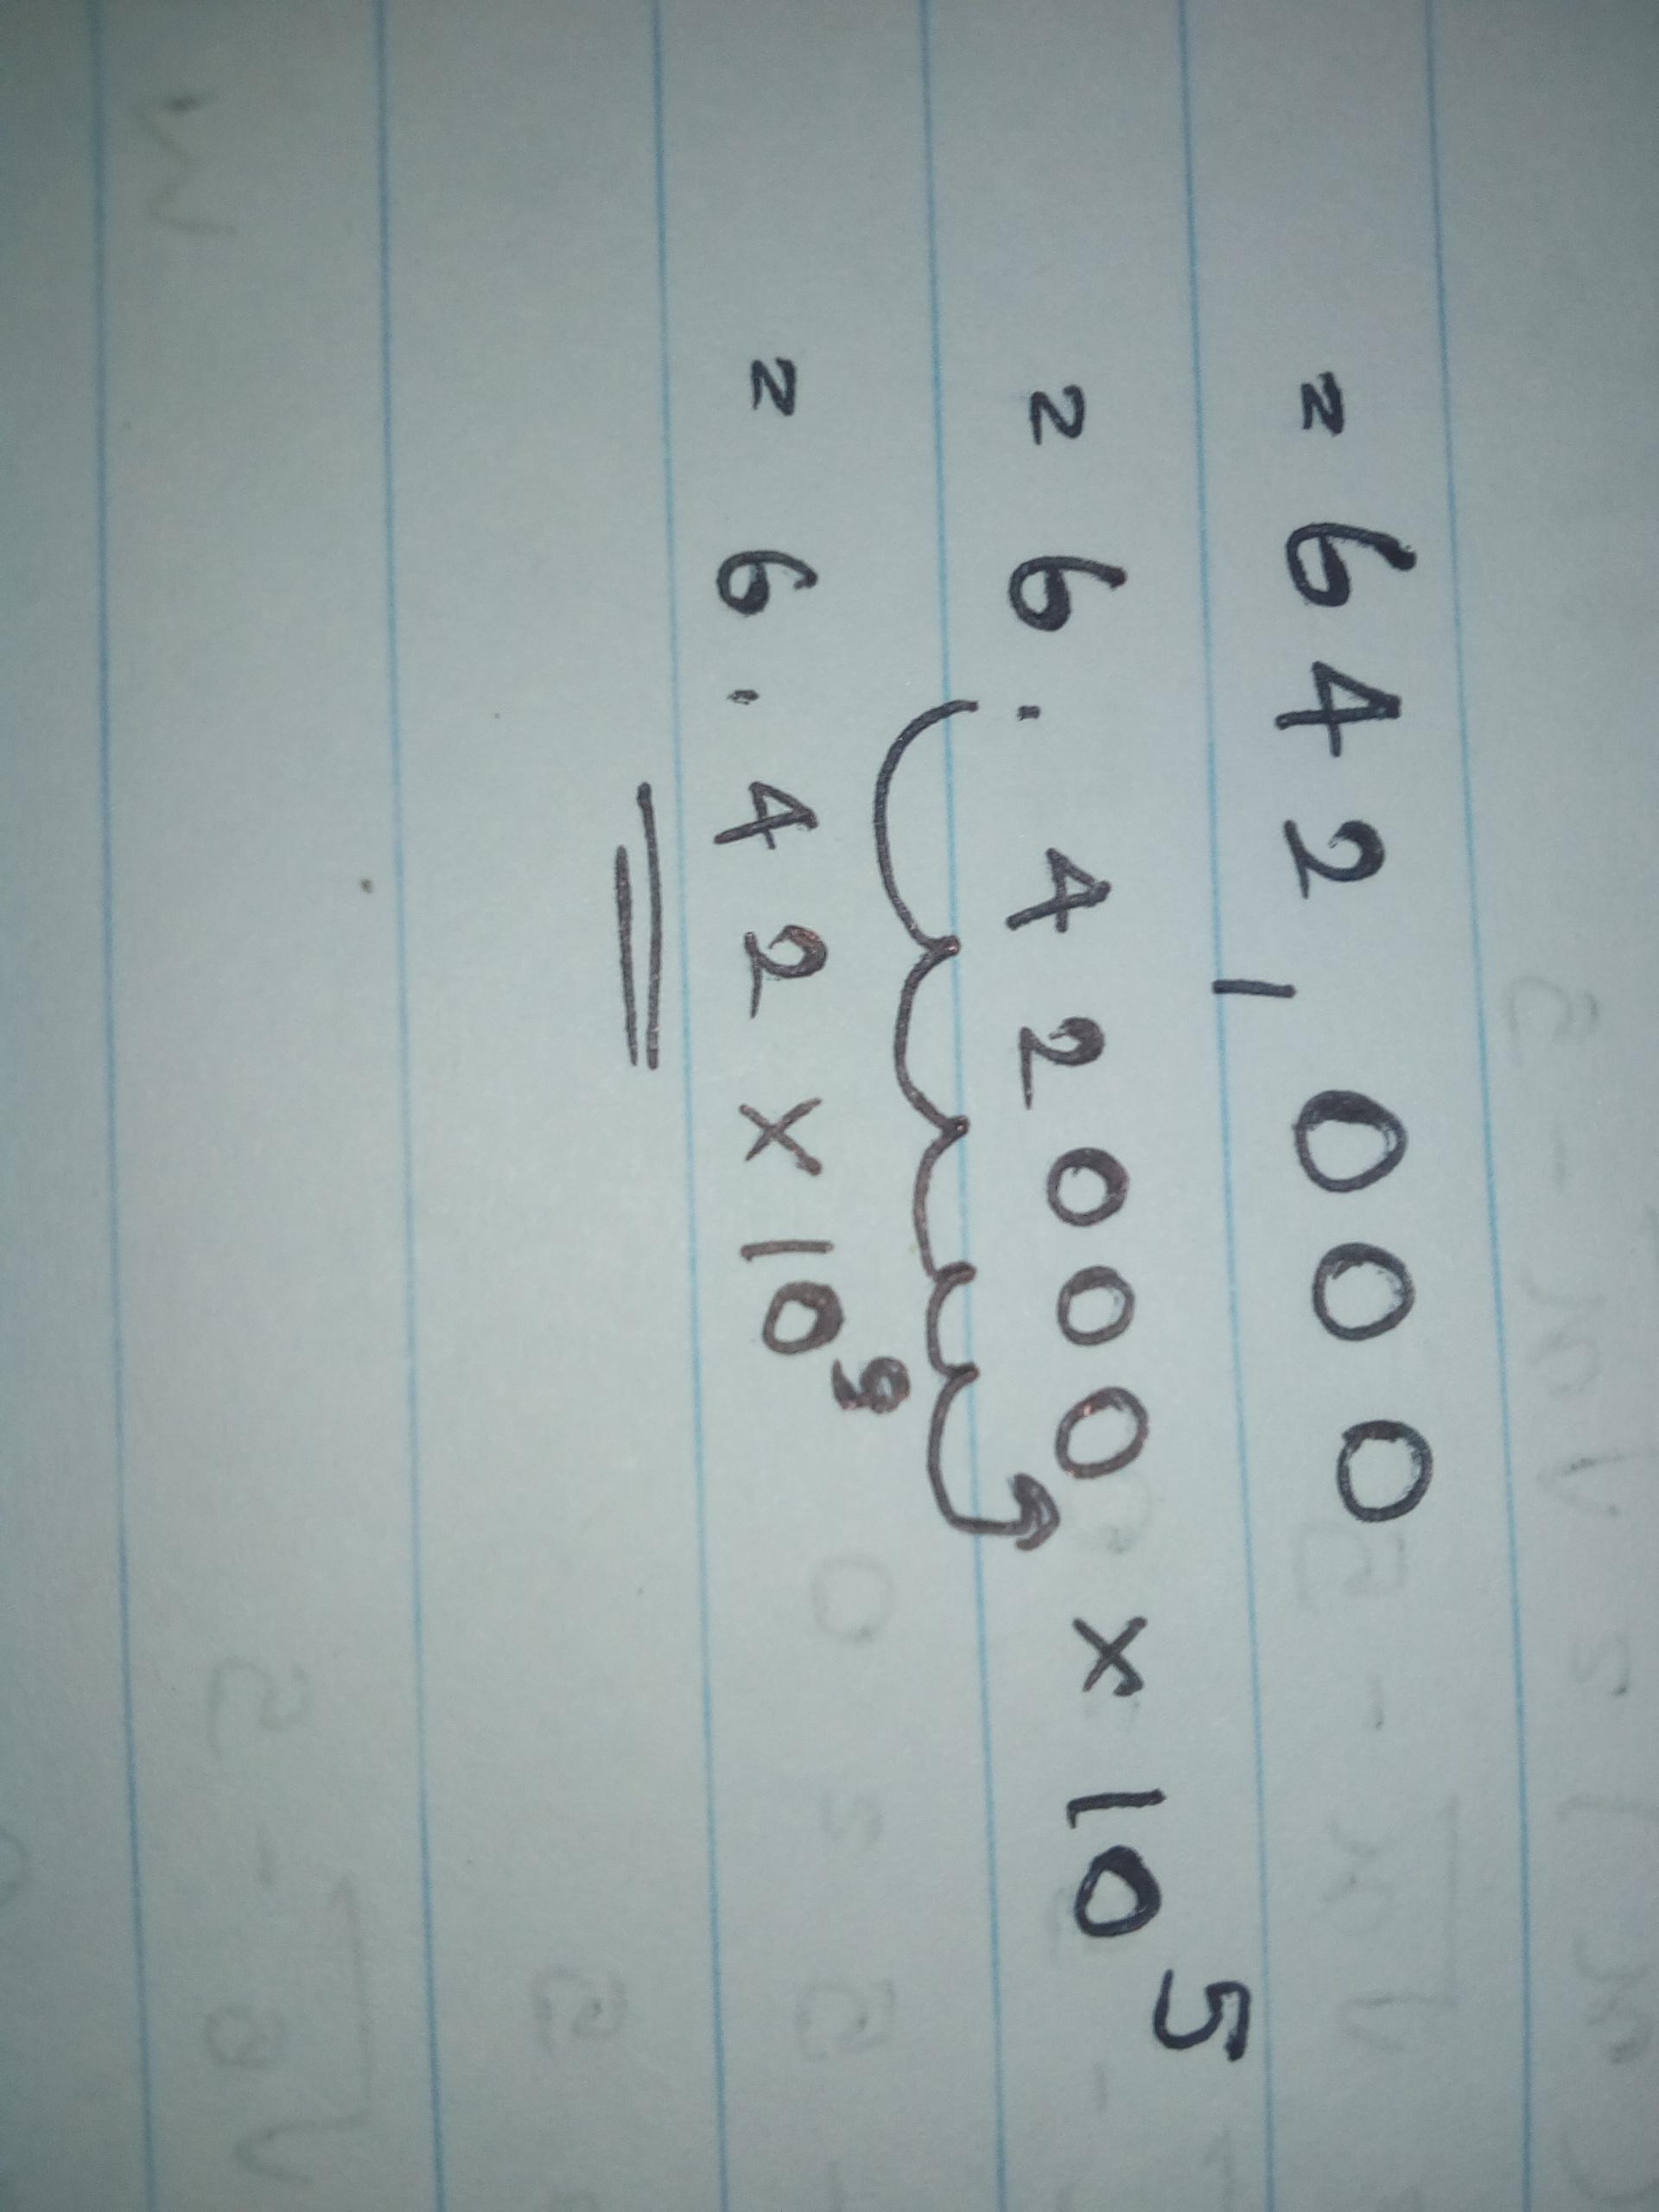 = 642,000
= 6.42000 × 10⁵
= 6.42 × 10⁹